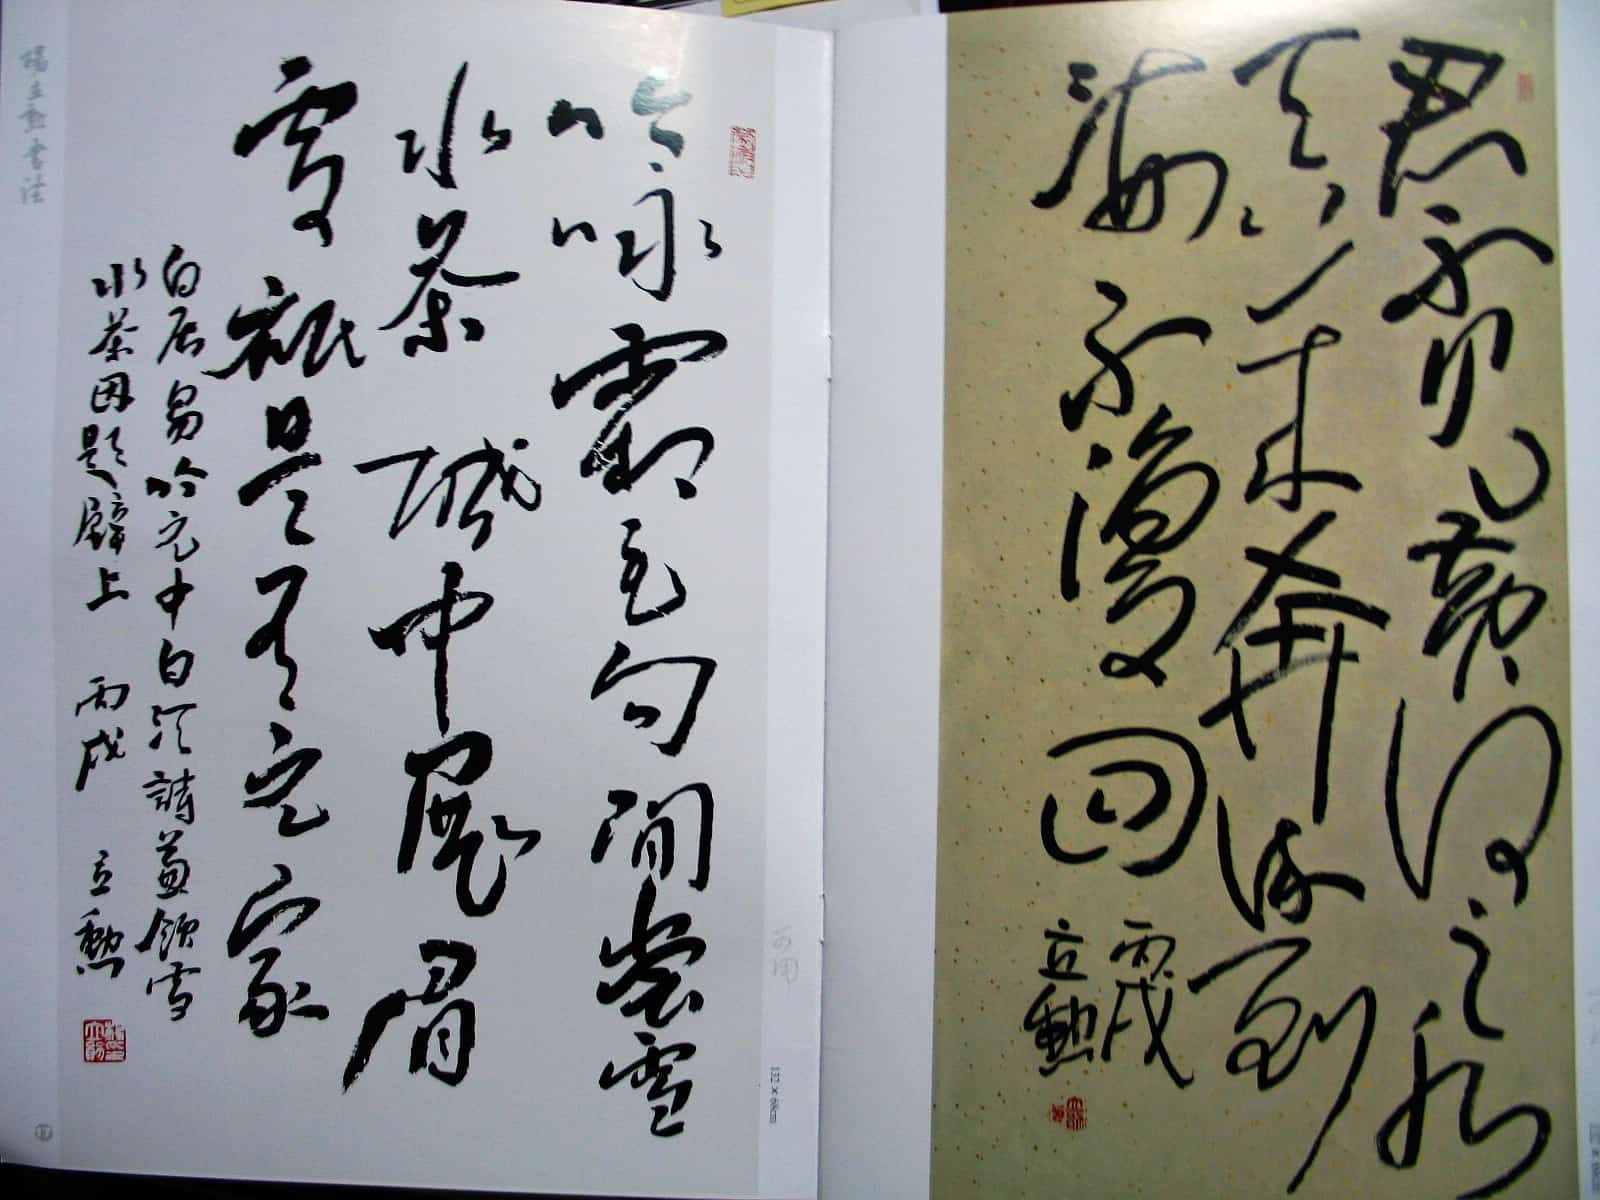 君不見黄河之水
天上来奔流到
海不復回
丙戌
立勳
吟咏霜毛句閒嘗雪
水茶城中展眉
處祗是有元家
白居易吟元中白須詩兼飲雪
水茶因題壁上 丙戌 立勳
楊立勳書法
132×68cm